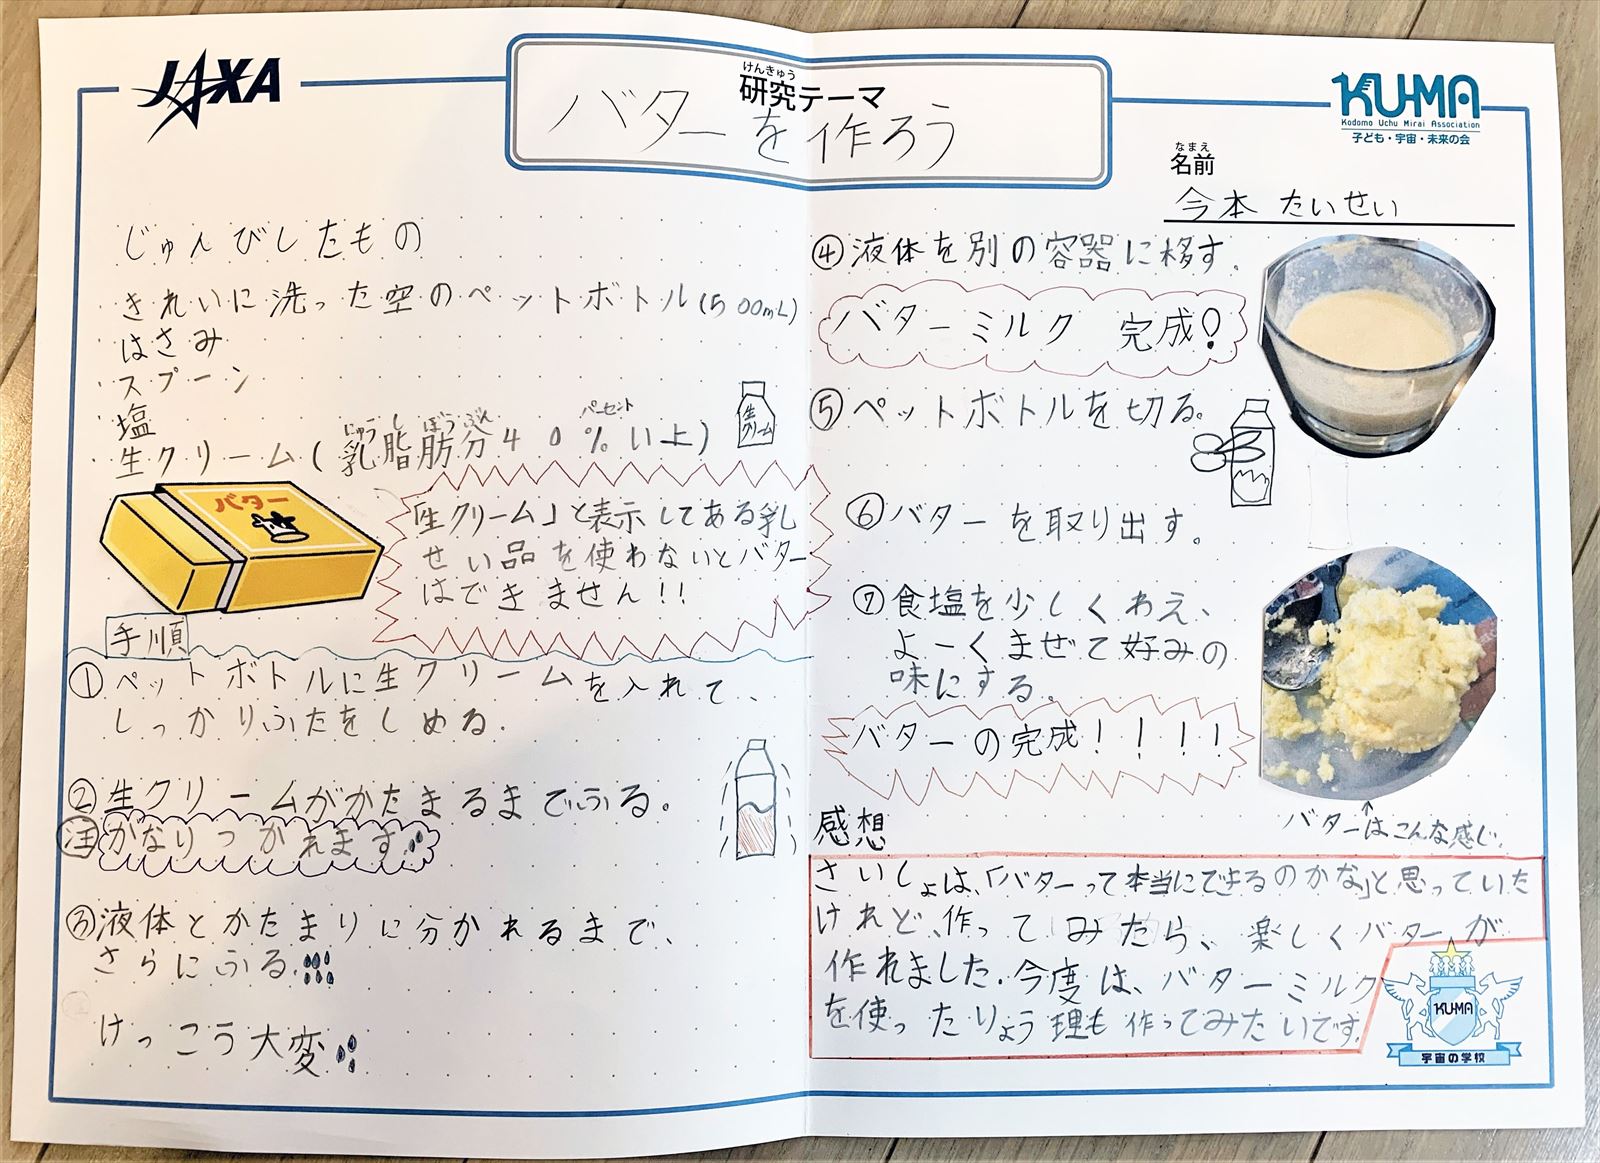 JAXA
けんきゅう
研究テーマ
バターを作ろう
KU-MA
Kodomo Uchu Mirai Association
子ども・宇宙・未来の会
なまえ
名前
今本 たいせい
じゅんびしたもの
きれいに洗った空のペットボトル(500mL)
はさみ
スプーン
塩
にゅうしぼうぶん パーセント
生クリーム(乳脂肪分40%以上)
生クリーム
バター
「生クリーム」と表示してある乳
せい品を使わないとバター
はできません!!
手順
①ペットボトルに生クリームを入れて、
しっかりふたをしめる。
②生クリームがかたまるまでふる。
注 かなりつかれます
③液体とかたまりに分かれるまで、
さらにふる。
けっこう大変
④液体を別の容器に移す。
バターミルク 完成!
⑤ペットボトルを切る。
⑥バターを取り出す。
⑦食塩を少しくわえ、
よーくまぜて好みの
味にする。
バターの完成!!!!
バターはこんな感じ。
感想
さいしょは、「バターって本当にできるのかな」と思っていた
けれど、作ってみたら、楽しくバターが
作れました。今度は、バターミルク
を使ったりょう理も作ってみたいです。
KU-MA
宇宙の学校